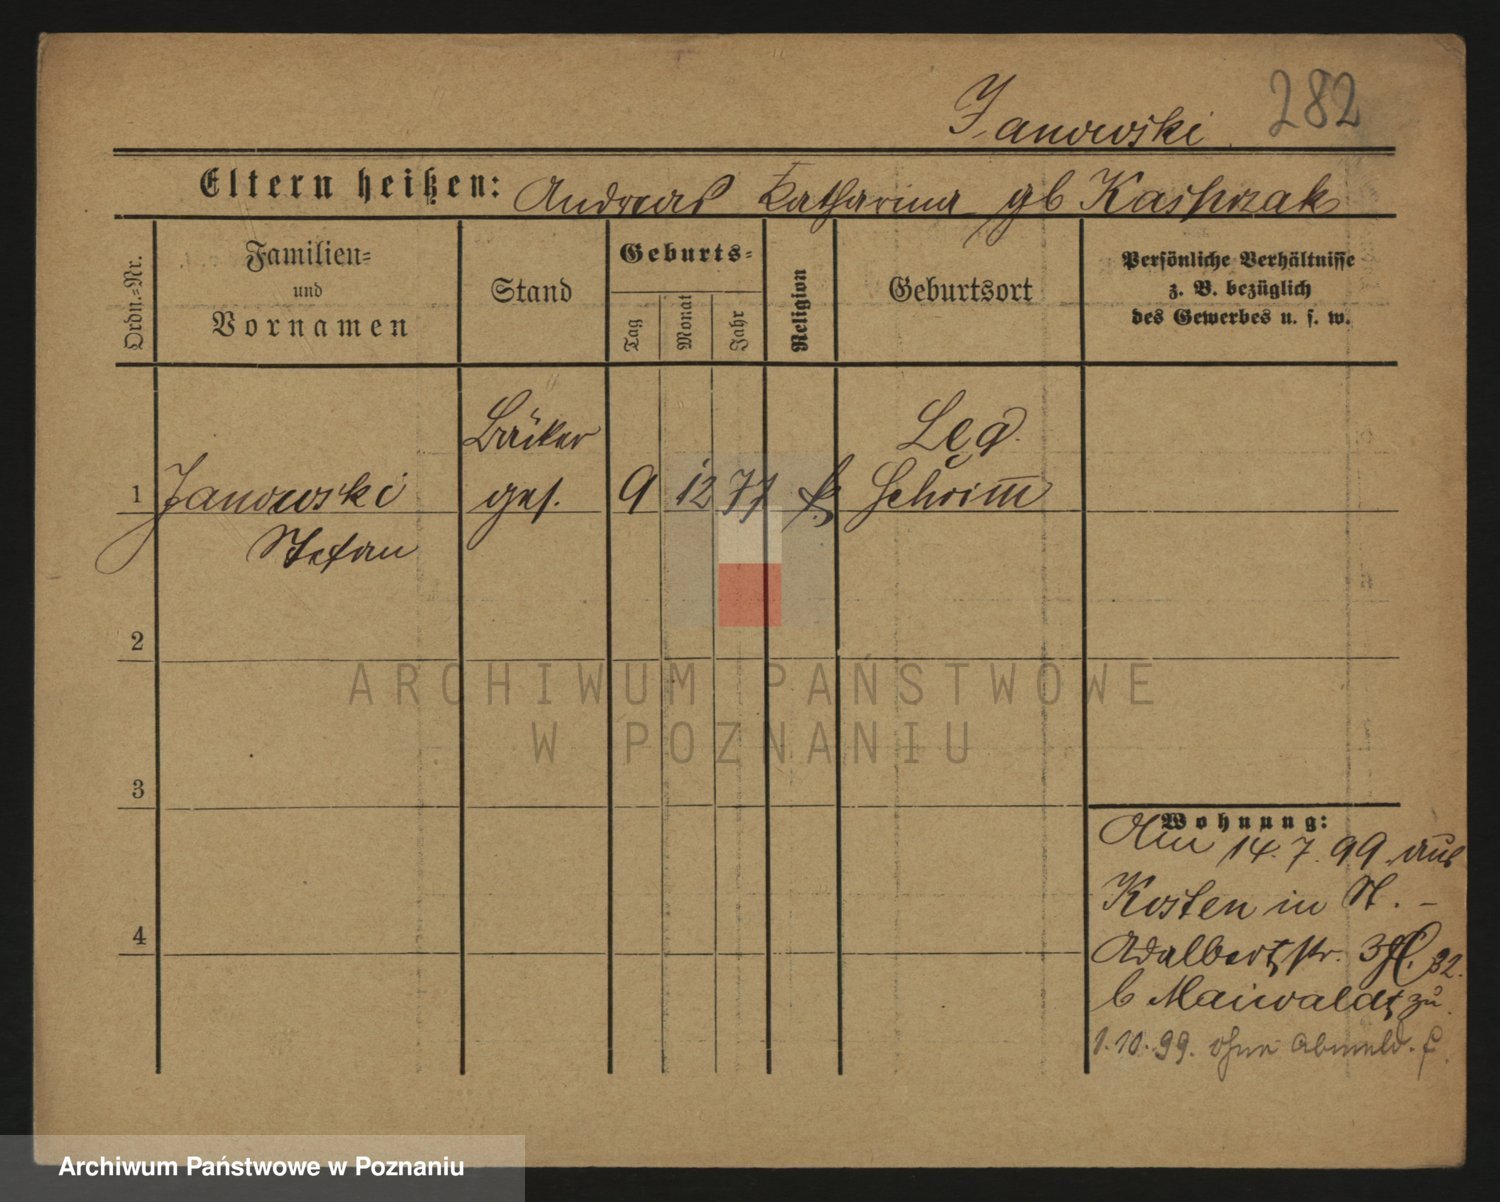 Janowski 282
Eltern heißen: Andreas Katharina gb Kasprzak
Ordn.-Nr.
Familien-
und
Vornamen
Stand
Geburts-
Tag
Monat
Jahr
Religion
Geburtsort
Persönliche Verhältnisse
z. B. bezüglich
des Gewerbes u. s. w.
1
Janowski
Stefan
Bäcker
ges.
9 12 77
k
Leg
Schrimm
2
3
4
ARCHIWUM PAŃSTWOWE
W POZNANIU
Wohnung:
Am 14.7.99 aus
Kosten in St. -
Adalbertstr. 32.
b Maiwaldt zu
1.10.99. ohne Abmeld.
Archiwum Państwowe w Poznaniu